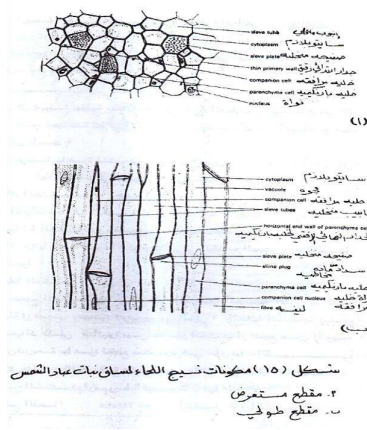 sieve tube
cytoplasm سايتوبلازم
sieve plate صفيحه منخليه
thin primary wall جدار ابتدائي رقيق
companion cell خليه مرافقه
parenchyme cell خليه بارنكيميه
nucleus نواة
(١)
cytoplasm سايتوبلازم
vacuole فجوه
companion cell خليه مرافقه
sieve tubes انابيب منخليه
horizontal end wall of parenchyme cell
sieve plate صفيحه منخليه
slime plug
parenchyme cell خليه بارنكيميه
companion cell nucleus
fibre ليف
شكل (١٥) مكونات نسيج اللحاء لساق نبات عباد الشمس
٢. مقطع مستعرض
ب. مقطع طولي